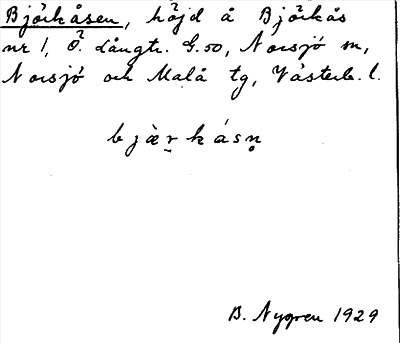 Björkåsen, höjd å Björkås
nr 1, Ö. Långtr. G. 50, Norsjö sn,
Norsjö och Malå tg, Västerb. l.
bjæ̀r̠kásn̥
B. Nygren 1929